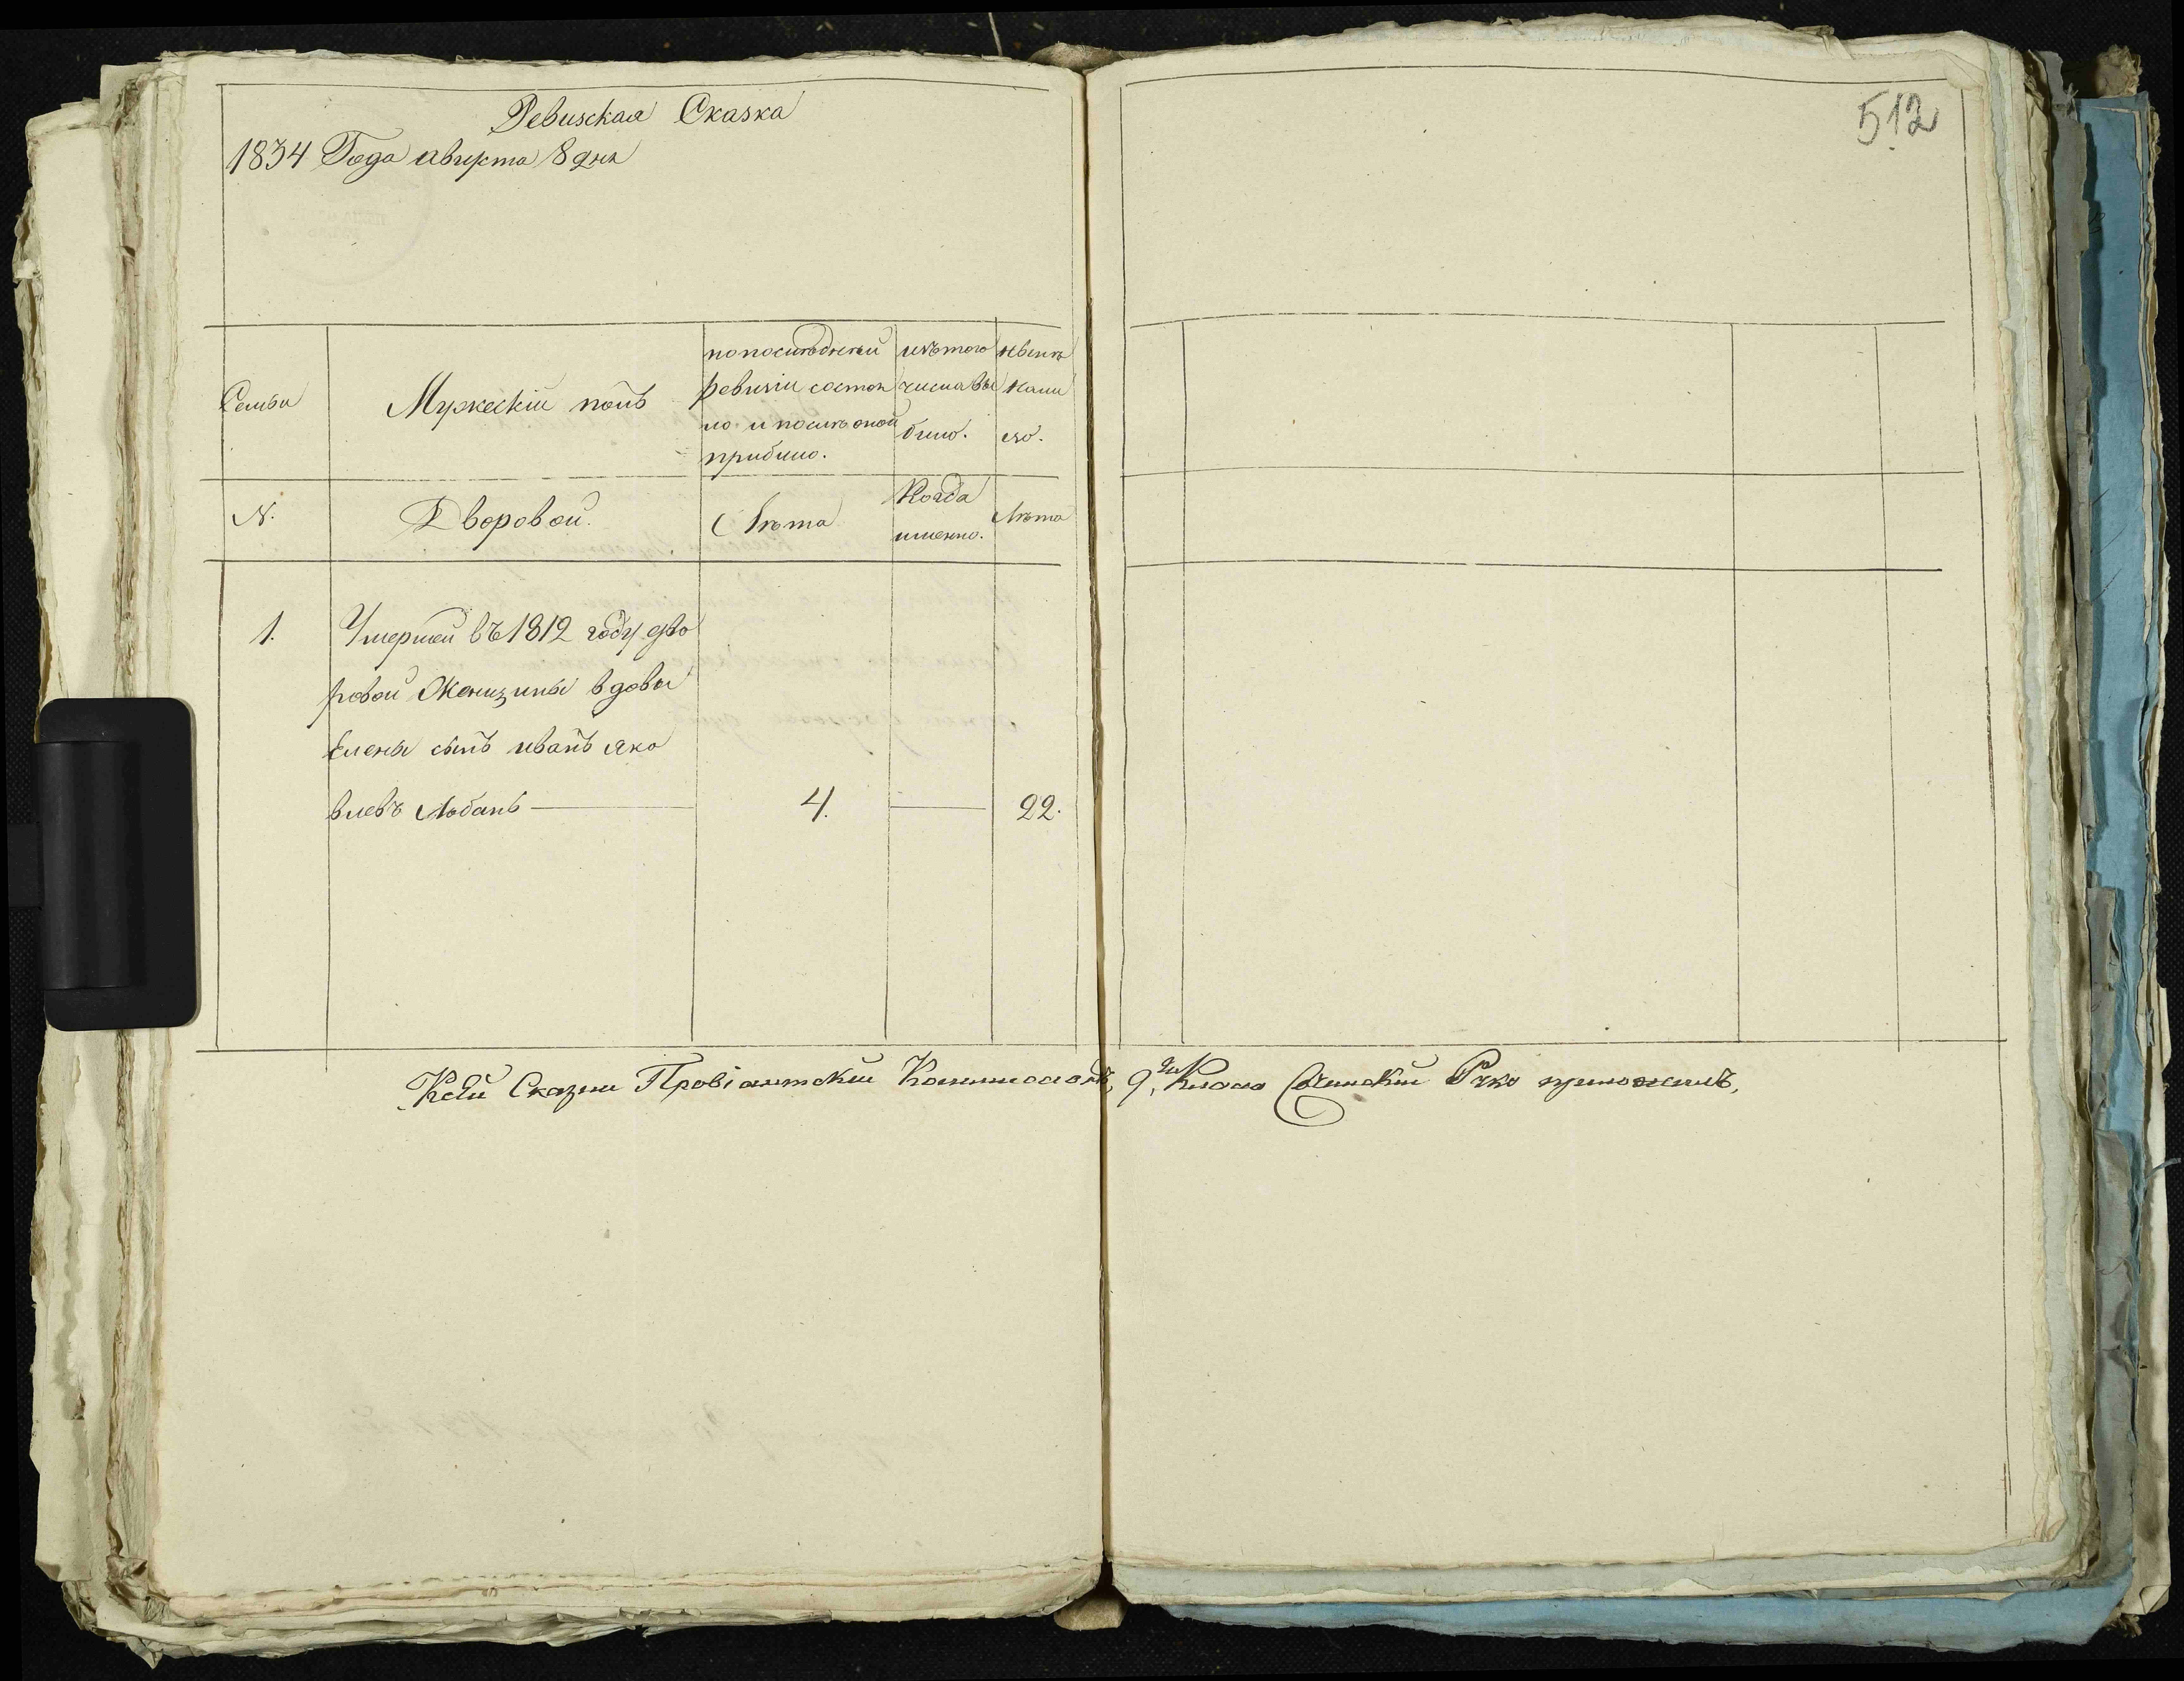 Ревизская Сказка
1834 Года августа 8 дня
512
Семьи
Мужескій полъ
по последней
ревизіи состоя
ло и после оной
прибыло.
изъ того
числа вы
было.
Ныне
на ли
цо.
N.
Дворовой.
Лета
Когда
именно.
Лета
1. Умершей въ 1812 году дво
ровой Женщины вдовы
Елены сынъ иванъ яко
влевъ Лобанъ 4. 22.
К сей Сказки Провіантскій Коммисіонеръ, 9го Класса руку приложилъ,